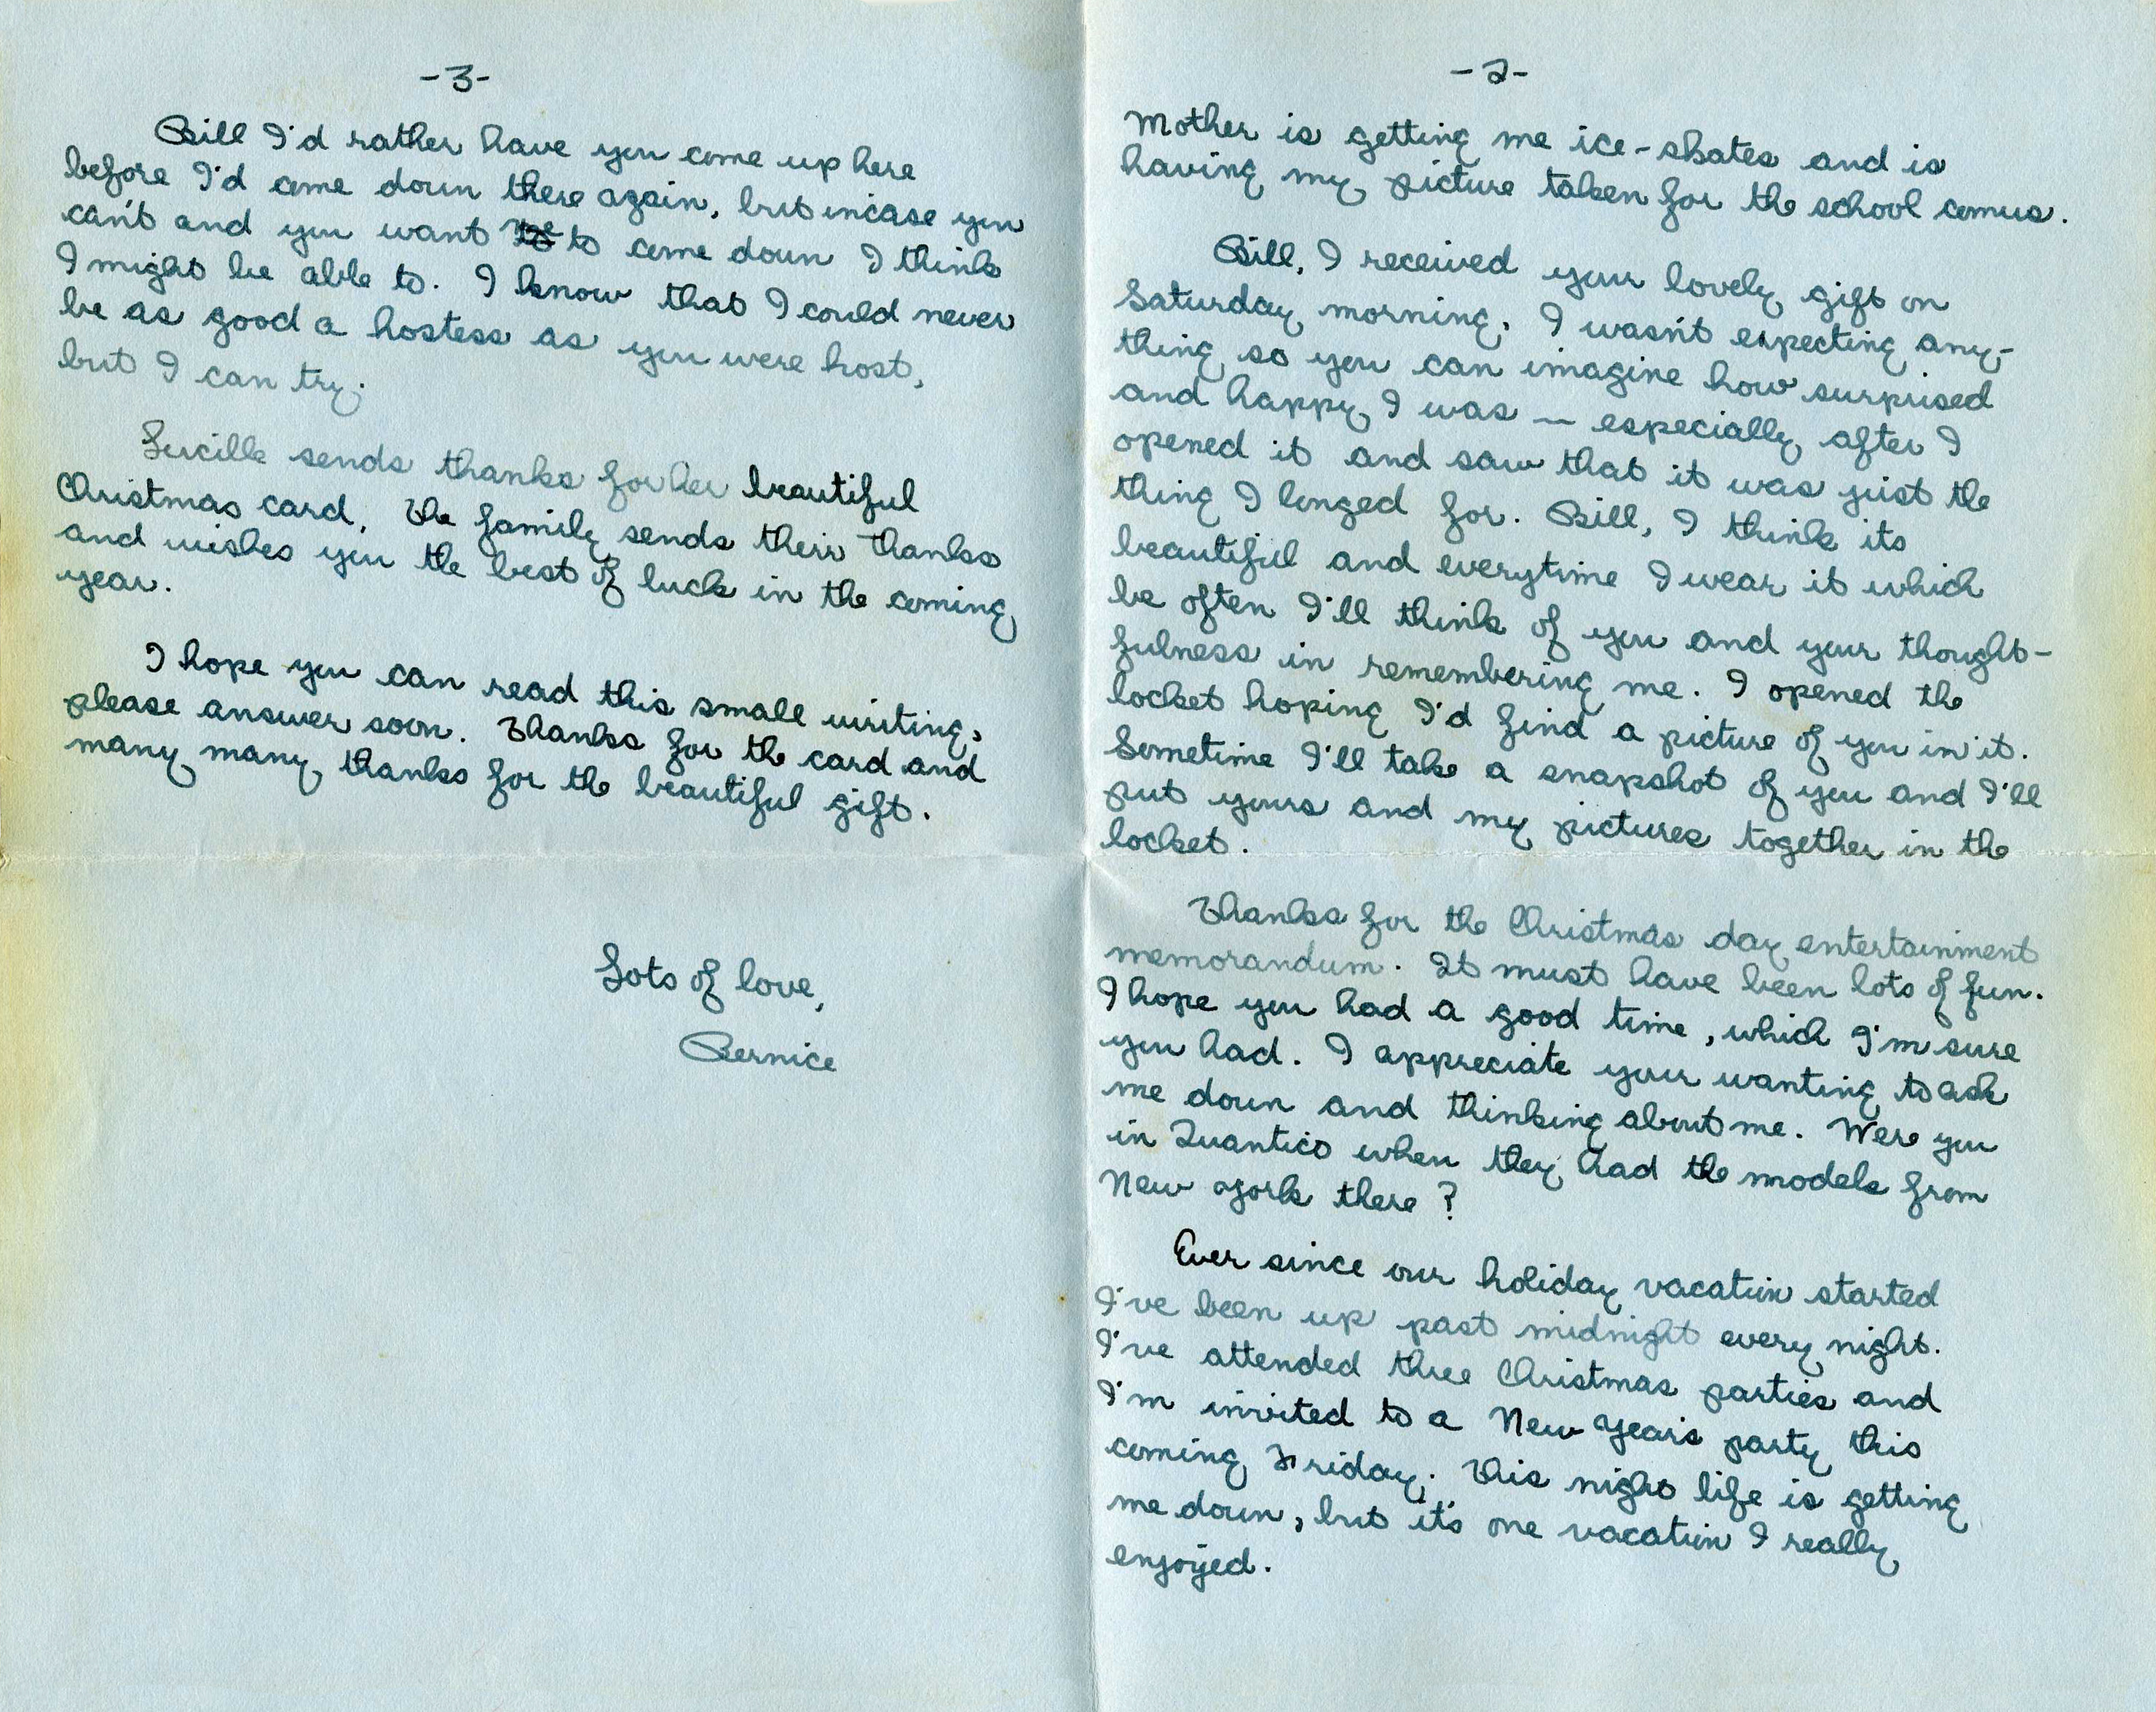 -2-
Mother is getting me ice-skates and is
having my picture taken for the school comus.
Bill, I received your lovely gift on
Saturday morning. I wasn't expecting any-
thing so you can imagine how surprised
and happy I was — especially after I
opened it and saw that it was just the
thing I longed for. Bill, I think its
beautiful and everytime I wear it which
be often I'll think of you and your thought-
fulness in remembering me. I opened the
locket hoping I'd find a picture of you in it.
Sometime I'll take a snapshot of you and I'll
put yours and my pictures together in the
locket.
Thanks for the Christmas day entertainment
memorandum. It must have been lots of fun.
I hope you had a good time, which I'm sure
you had. I appreciate your wanting to ask
me down and thinking about me. Were you
in Quantico when they had the models from
New York there?
Ever since our holiday vacation started
I've been up past midnight every night.
I've attended three Christmas parties and
I'm invited to a New Year's party this
coming Friday. This night life is getting
me down, but it's one vacation I really
enjoyed.
-3-
Bill I'd rather have you come up here
before I'd come down there again, but incase you
can't and you want to come down I think
I might be able to. I know that I could never
be as good a hostess as you were host,
but I can try.
Lucille sends thanks for her beautiful
Christmas card. The family sends their thanks
and wishes you the best of luck in the coming
year.
I hope you can read this small writing,
please answer soon. Thanks for the card and
many many thanks for the beautiful gift.
Lots of love,
Bernice